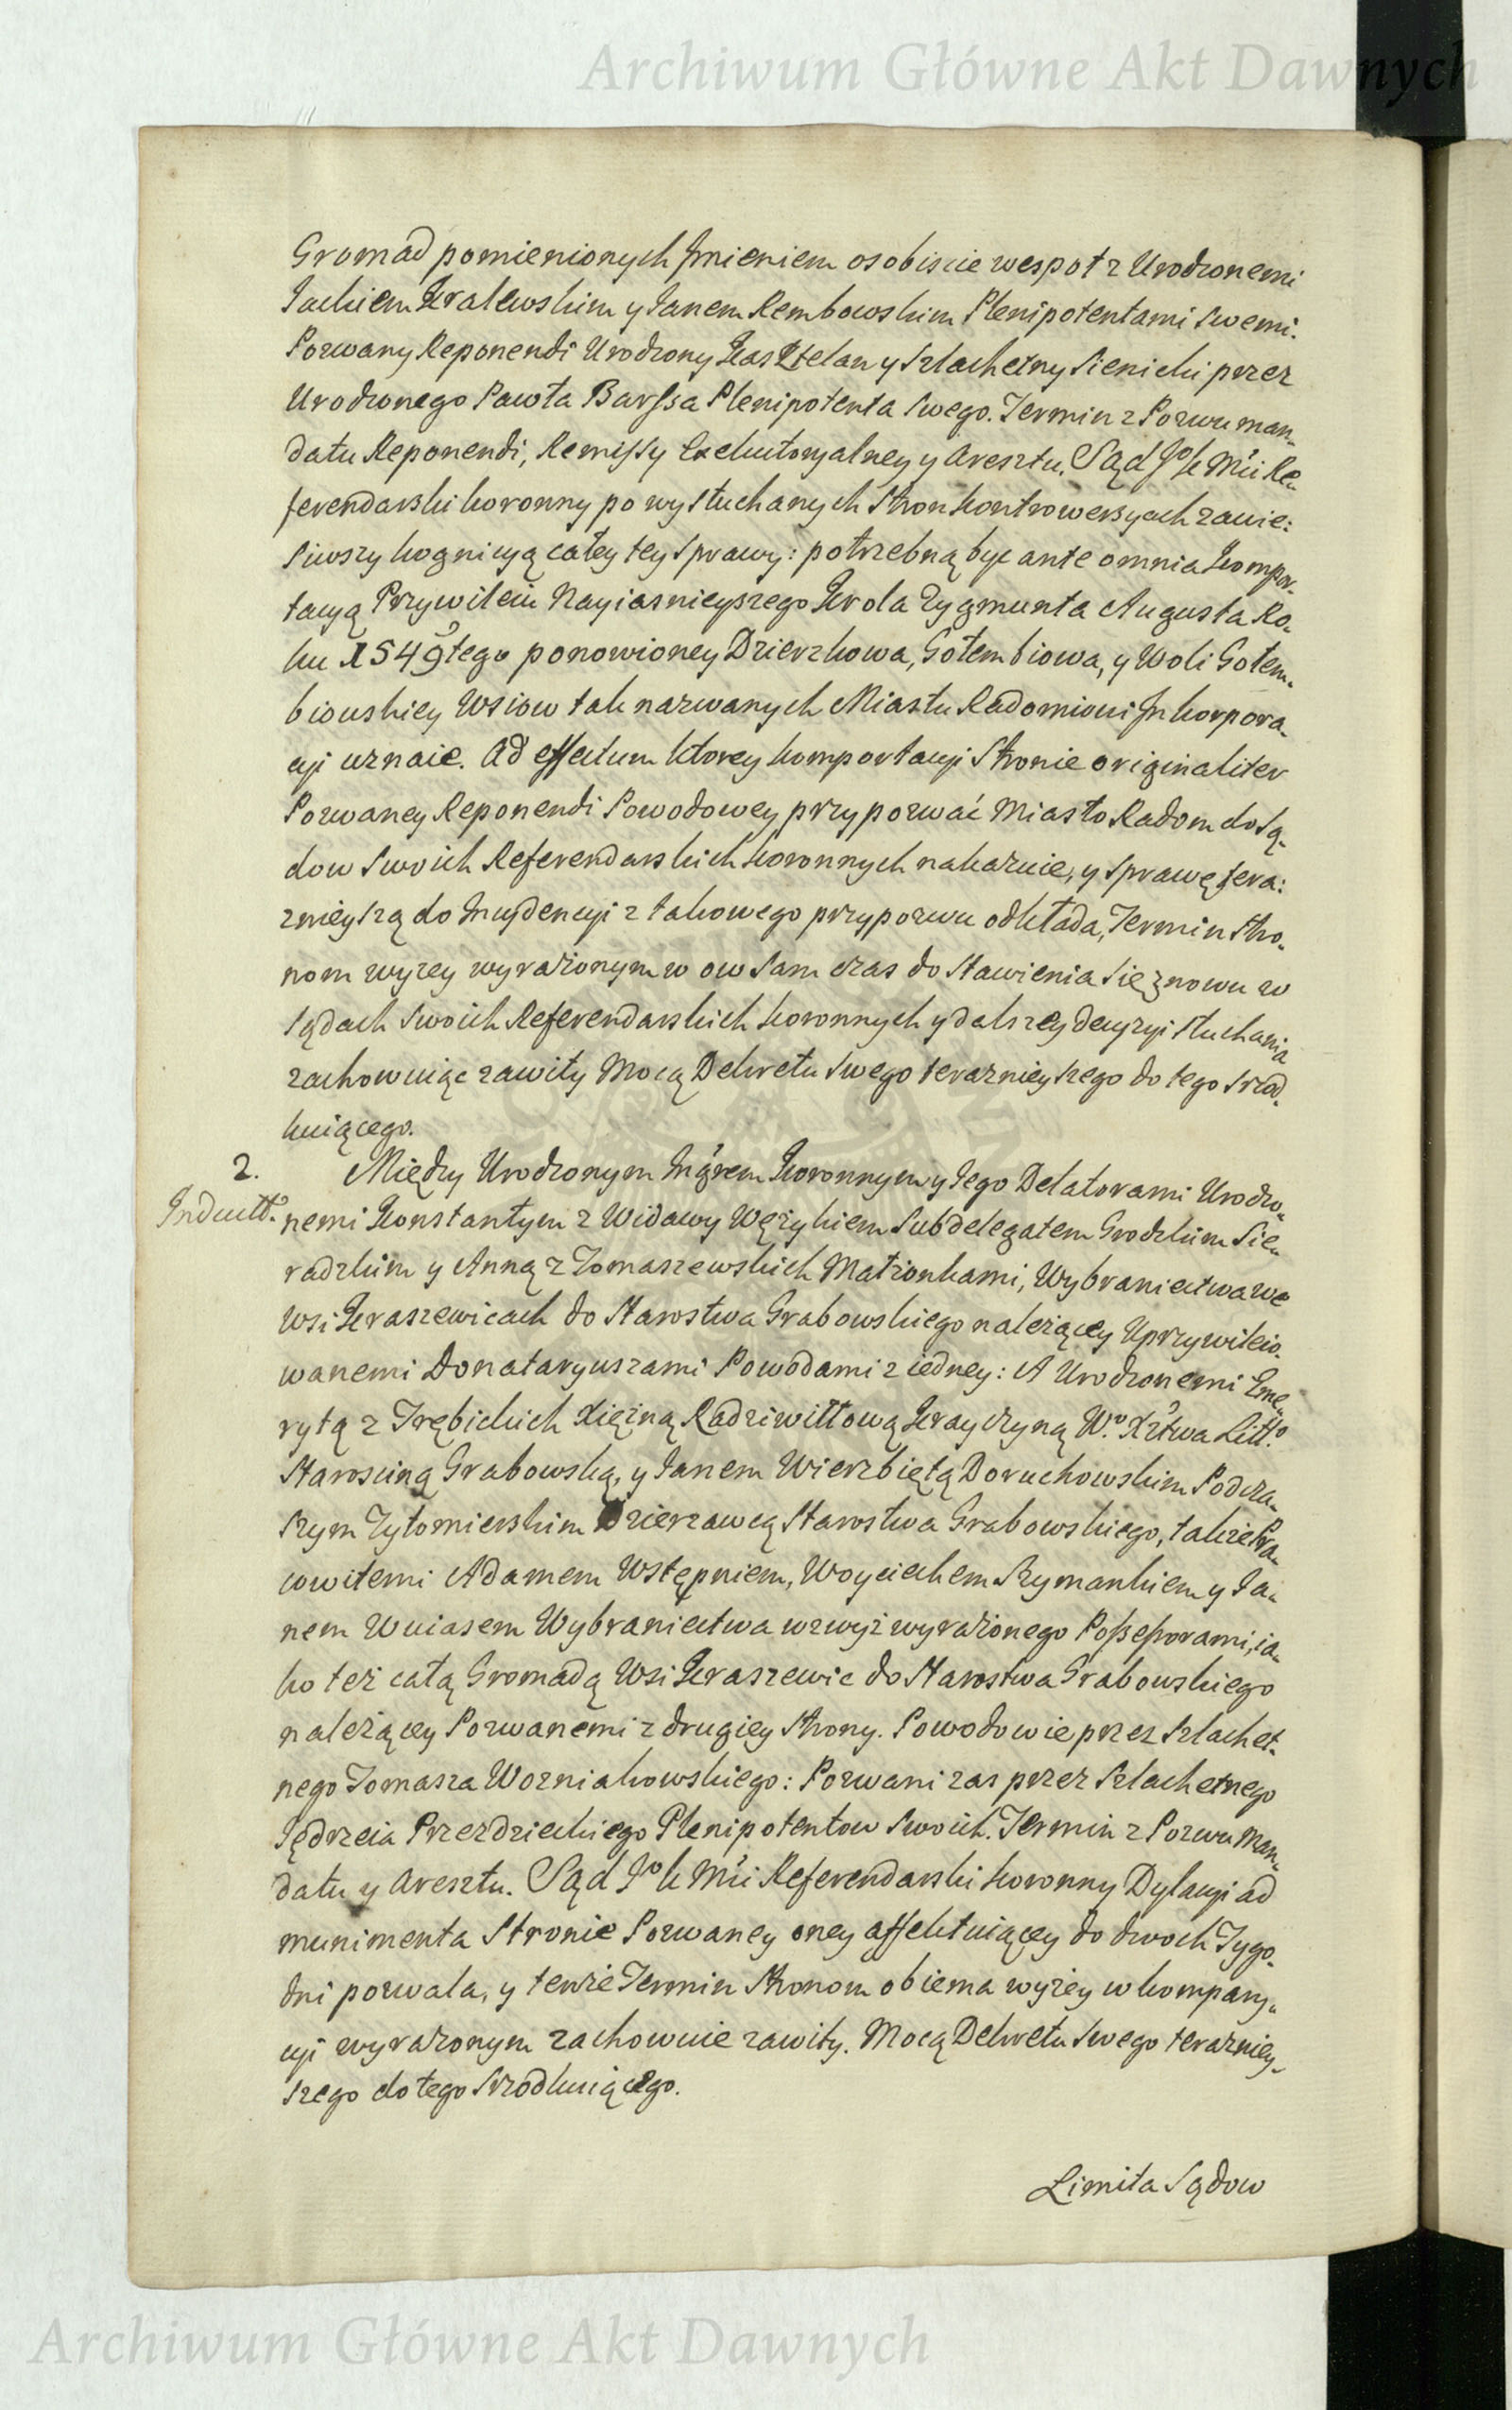 Archiwum Główne Akt Dawnych
Gromad pomienionych Jmieniem osobiscie wespoł z Urodzonemi
Jackiem Kralewskim y Janem Rembowskim Plenipotentami swemi.
Pozwany Reponendi Urodzony Kasztelan y Szlachetny Sienicki przez
Urodzonego Pawła Barssa Plenipotenta swego. Termin z Pozwu man„
datu Reponendi, Remissy Exekutoryalney y Aresztu. Sąd JoK Mci Re„
ferendarski koronny po wysłuchanych Stron kontrowersyach zawie:
siwszy kognicyą całey tey sprawy: potrzebną byc ante omnia kompor„
tacyą Przywileiu Nayiasnieyszego Krola Zygmunta Augusta Ro„
ku 1549tego ponowioney Dzierzkowa, Gołembiowa, y Woli Gołem„
biowskiey Wsiow tak nazwanych Miastu Radomiowi Jnkorpora„
cyi uznaie. Ad effectum ktorey komportacyi Stronie originaliter
Pozwaney Reponendi Powodowey przypozwać Miasto Radom do Są„
dow swoich Referendarskich koronnych nakazuie, y sprawę tera:
znieyszą do Jncydencyi z takowego przypozwu odkłada, Termin Stro„
nom wyzey wyrażonym w ow sam czas do stawienia się znowu w
Sądach swoich Referendarskich koronnych y dalszey decyzyi słuchania
zachowuiąc zawity Mocą Dekretu swego teraznieyszego do tego srzod„
kuiącego.
2. Między Urodzonym Jnstgrem Koronnym y Jego Delatorami Urodzo„
Jnducta nemi Konstantym z Widawy Wężykiem Subdelegatem Grodzkim Sie„
radzkim y Anną z Tomaszewskich Małżonkami, Wybraniectwa we
wsi Kraszewicach do Starostwa Grabowskiego należącey Uprzywileio„
wanemi Donataryuszami Powodami z iedney: A Urodzonemi Eme„
rytą z Trębickich Xiężną Radziwiłłową Krayczyną W.o Xztwa Litt.o
Starosciną Grabowską, y Janem Wierzbiętą Doruchowskim Podcza„
szym Zytomierskim Dzierzawcą Starostwa Grabowskiego, takze Pra„
cowitemi Adamem Wstępniem, Woyciechem Szymankiem y Ja„
nem Wuiasem Wybraniectwa wzwyż wyrażonego Possessorami, ia„
ko tez całą Gromadą Wsi Kraszewic do Starostwa Grabowskiego
należącey Pozwanemi z drugiey strony. Powodowie przez Szlachet„
nego Tomasza Wozniakowskiego: Pozwani zas przez Szlachetnego
Jędrzeia Przezdzieckiego Plenipotentow swoich. Termin z Pozwu Man„
datu y Aresztu. Sąd JoK Mci Referendarski koronny Dylacyi ad
munimenta Stronie Pozwaney oney affektuiącey do dwoch Tygo„
dni pozwala, y tenże Termin Stronom obiema wyżey w kompary„
cyi wyrażonym zachowuie zawity. Mocą Dekretu swego terazniey„
szego do tego srzodkuiącego.
Limita Sądow
Archiwum Główne Akt Dawnych